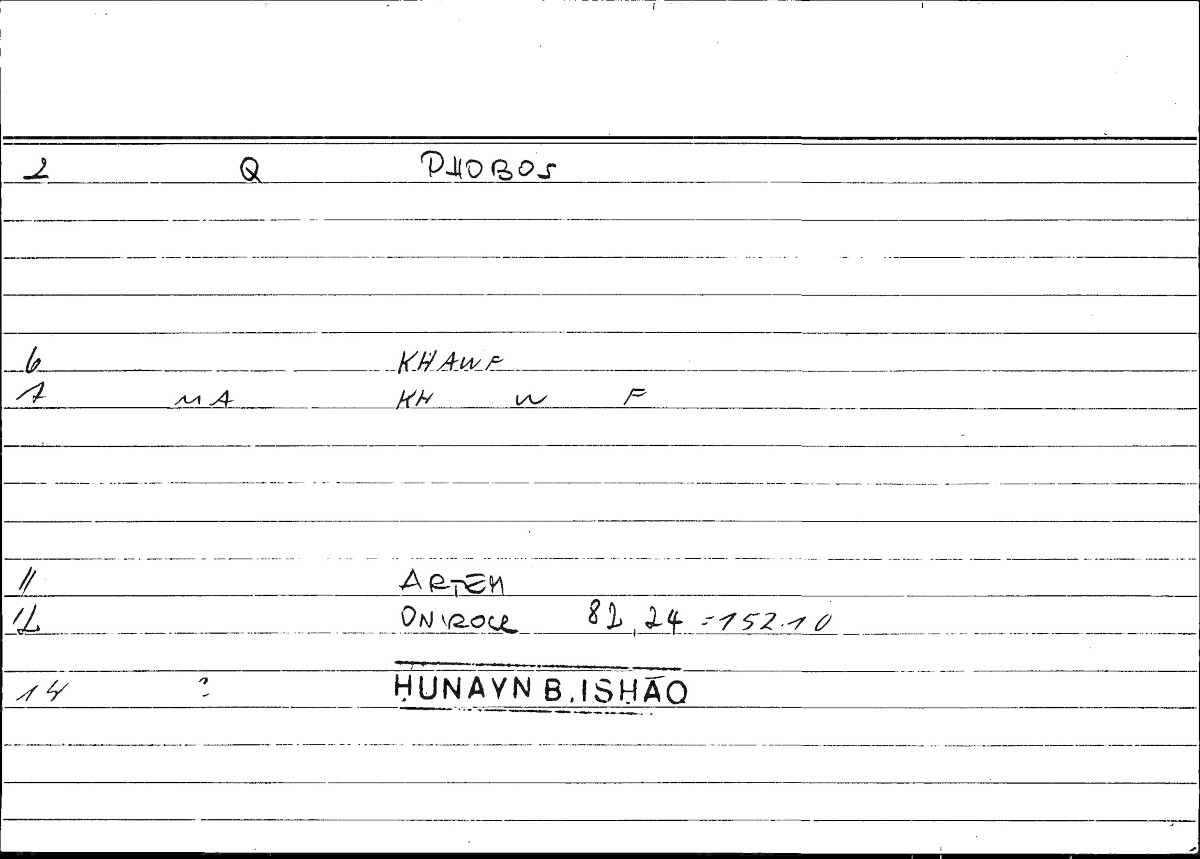 2 Q PHOBOS
6 KHAWF
7 MA KH W F
11 ARTEM
12 ONIROCR 82,24 =152.10
14 ? ḤUNAYN B. ISḤĀQ